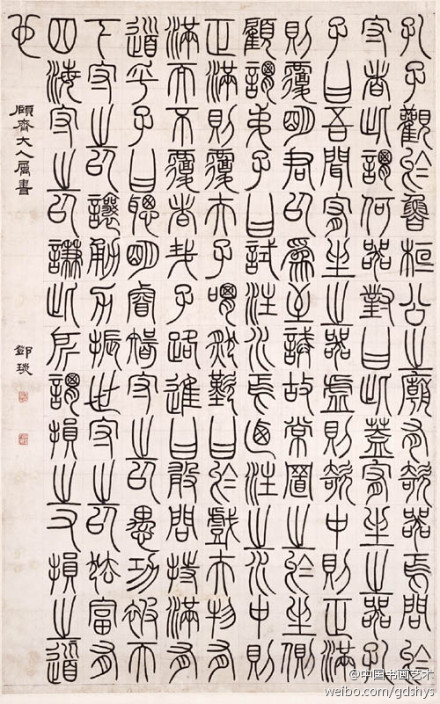 孔子觀於魯桓公之廟有欹器焉問於
守者此謂何器對曰此蓋宥坐之器孔
子曰吾聞宥坐之器虛則欹中則正滿
則覆明君以爲至誡故常置之於坐側
顧謂弟子曰試注水焉乃注之水中則
正滿則覆夫子喟然歎曰於戲夫物有
滿而不覆者哉子路進曰敢問持滿有
道乎子曰聰明睿智守之以愚功被天
下守之以讓勇力振世守之以怯富有
四海守之以謙此所謂損之又損之道
也
顧齊大人屬書
鄧琰
@中国书画艺术
weibo.com/gdshys